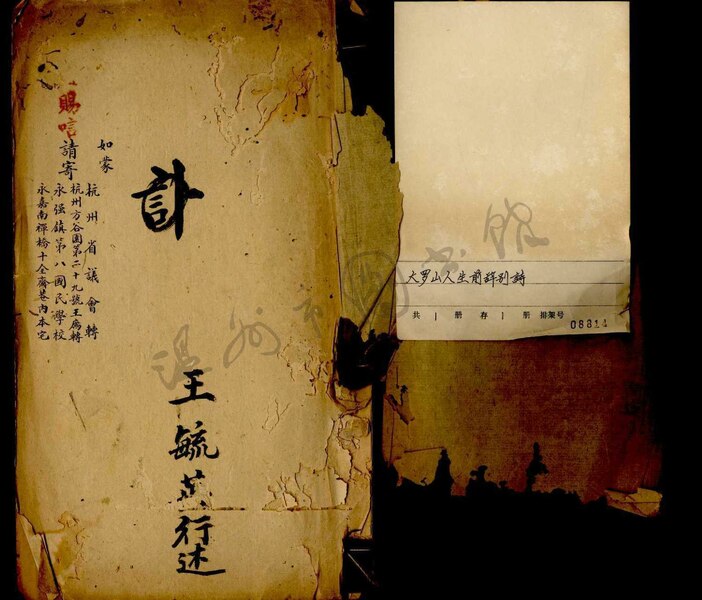 訃
王毓英行述
如蒙
賜唁請寄
杭州省議會轉
杭州方谷園第二十九號王寓轉
永强鎮第八國民學校
永嘉南禪橋十全齋巷內本宅
大罗山人生前辞别诗
共1册存1册排架号
06814
温州市图书馆